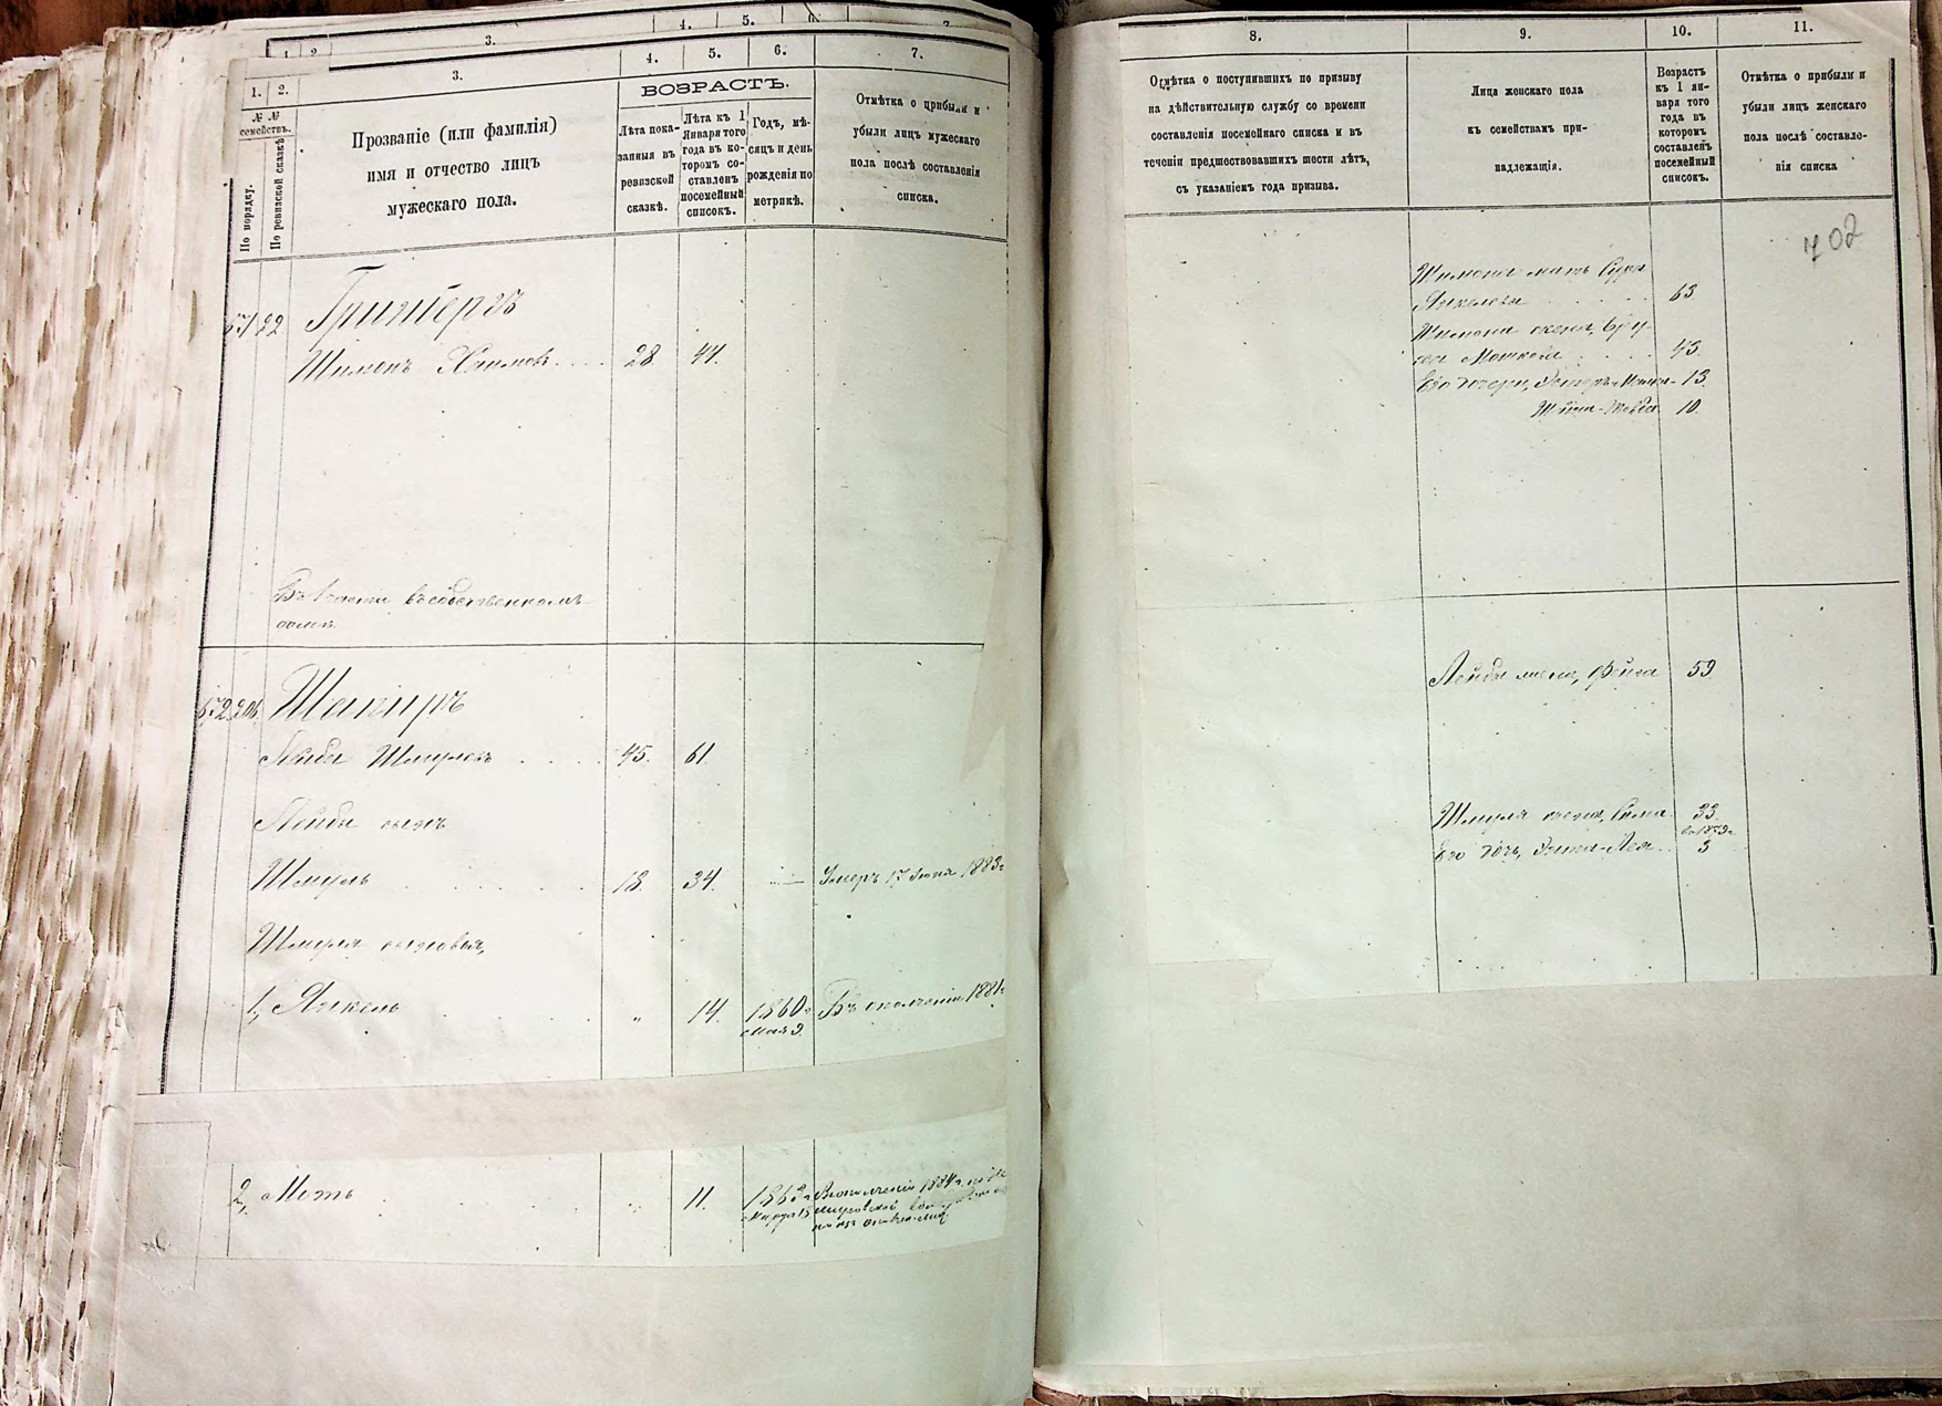 3. 4. 5. 6. 7.
1. 2.
1. 2. 3. 4. 5. 6. 7.
№ №
семействъ.
По порядку.
По ревизской сказкѣ
Прозваніе (или фамилія)
имя и отчество лицъ
мужескаго пола.
ВОЗРАСТЪ.
Лѣта пока-
занныя въ
ревизской
сказкѣ.
Лѣта къ 1
Января того
года въ ко-
торомъ со-
ставленъ
посемейный
списокъ.
Годъ, мѣ-
сяцъ и день
рожденія по
метрикѣ.
Отмѣтка о прибыли и
убыли лицъ мужескаго
пола послѣ составленія
списка.
671 22 Гринбергъ
Шимонъ Хаимовъ . . . . 28 44.
собственномъ
домѣ.
672 Шапиръ
Лейба Шмулевъ . . . . 45. 61.
Лейбы сынъ
Шмуль . . . . . 18. 34. — Умеръ 17 1883г
Шмуля сыновья,
1, Янкель . . . . „ 14. 1860г Въ ополченіи 1881г
мая 9.
2, Моть . . . . . „ 11. 1863г ополченіи 1884г.
8. 9. 10. 11.
Отмѣтка о поступившихъ по призыву
на дѣйствительную службу со времени
составленія посемейнаго списка и въ
теченіи предшествовавшихъ шести лѣтъ,
съ указаніемъ года призыва.
Лица женскаго пола
къ семействамъ при-
надлежащія.
Возрастъ
къ 1 ян-
варя того
года въ
которомъ
составленъ
посемейный
списокъ.
Отмѣтка о прибыли и
убыли лицъ женскаго
пола послѣ составле-
нія списка
702
Шимона мать Сура
Янкелева . . . . 63.
Шимона жена,
Мошкова . . . . 43.
Его дочери, 13.
10.
Лейбы жена, Фейга 59.
Шмуля жена, 33.
Его дочь, 3